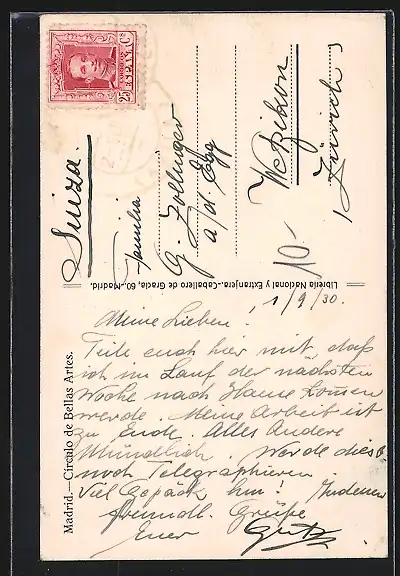 CORREOS
ESPAÑA
25 Cs
Suiza.
Familia
G. Zollinger
a/d. Egg
Wetzikon
(Zürich)
10-
Librería Nacional y Extranjera.-Caballero de Gracia, 60.-Madrid.
Madrid.—Círculo de Bellas Artes.
1/9/30.
Meine Lieben!
Teile euch hier mit, daß
ich im Lauf der nächsten
Woche nach Hause komen
werde. Meine Arbeit ist
zu Ende. Alles Andere
Mündlich. Werde dies
noch Telegraphieren.
Viel Gepäck hin! Indessen
freundl. Grüße
Euer